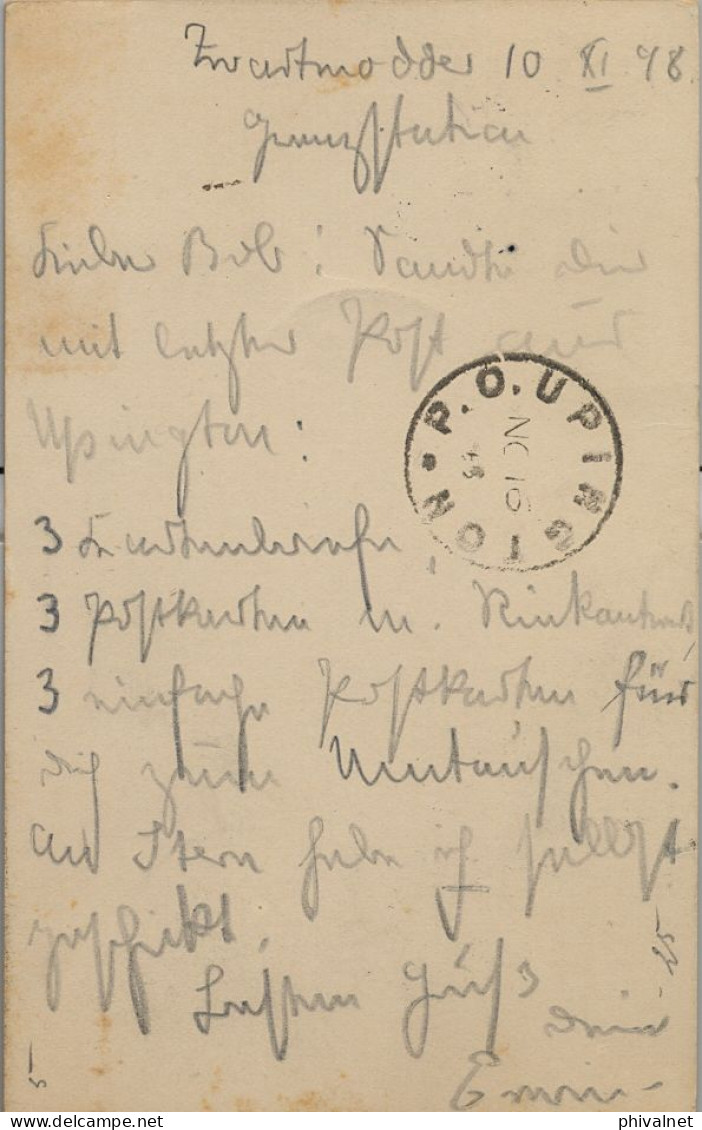 Zwartmodder 10 XI 98.
Grenzstation
Lieber Bob! Sandte dir
mit letzter Post aus
Upington:
3 Kartenbriefe,
3 Postkarten m. Rückantwort,
3 einfache Postkarten für
dich zum Umtauschen.
An Stern habe ich selbst
geschickt.
Besten Gruß
dein
Erwin
P.O. UPINGTON
NO 16
98
phivalnet